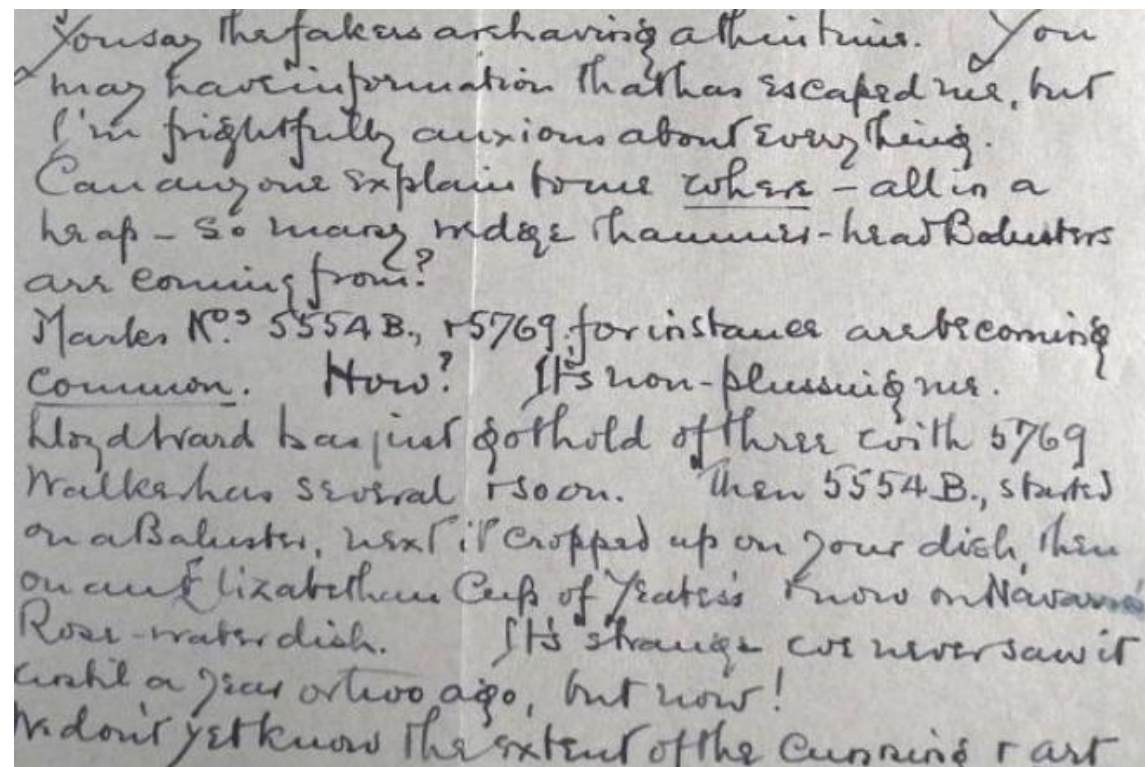 You say the fakers are having a thin time. You
may have information that has escaped me, but
I'm frightfully anxious about everything.
Can anyone explain to me where – all in a
heap – so many wedge & hammer-head Balusters
are coming from?
Marks Nos 5554B., & 5769, for instance are becoming
common. How? It's non-plussing me.
Lloyd Ward has just got hold of three with 5769
Walker has several & so on. Then 5554B., started
on a Baluster, next it cropped up on your dish, then
on an Elizabethan Cup of Yeates's & now on Navarro
Rose-water dish. It's strange we never saw it
until a year or two ago, but now!
We don't yet know the extent of the cunning & art